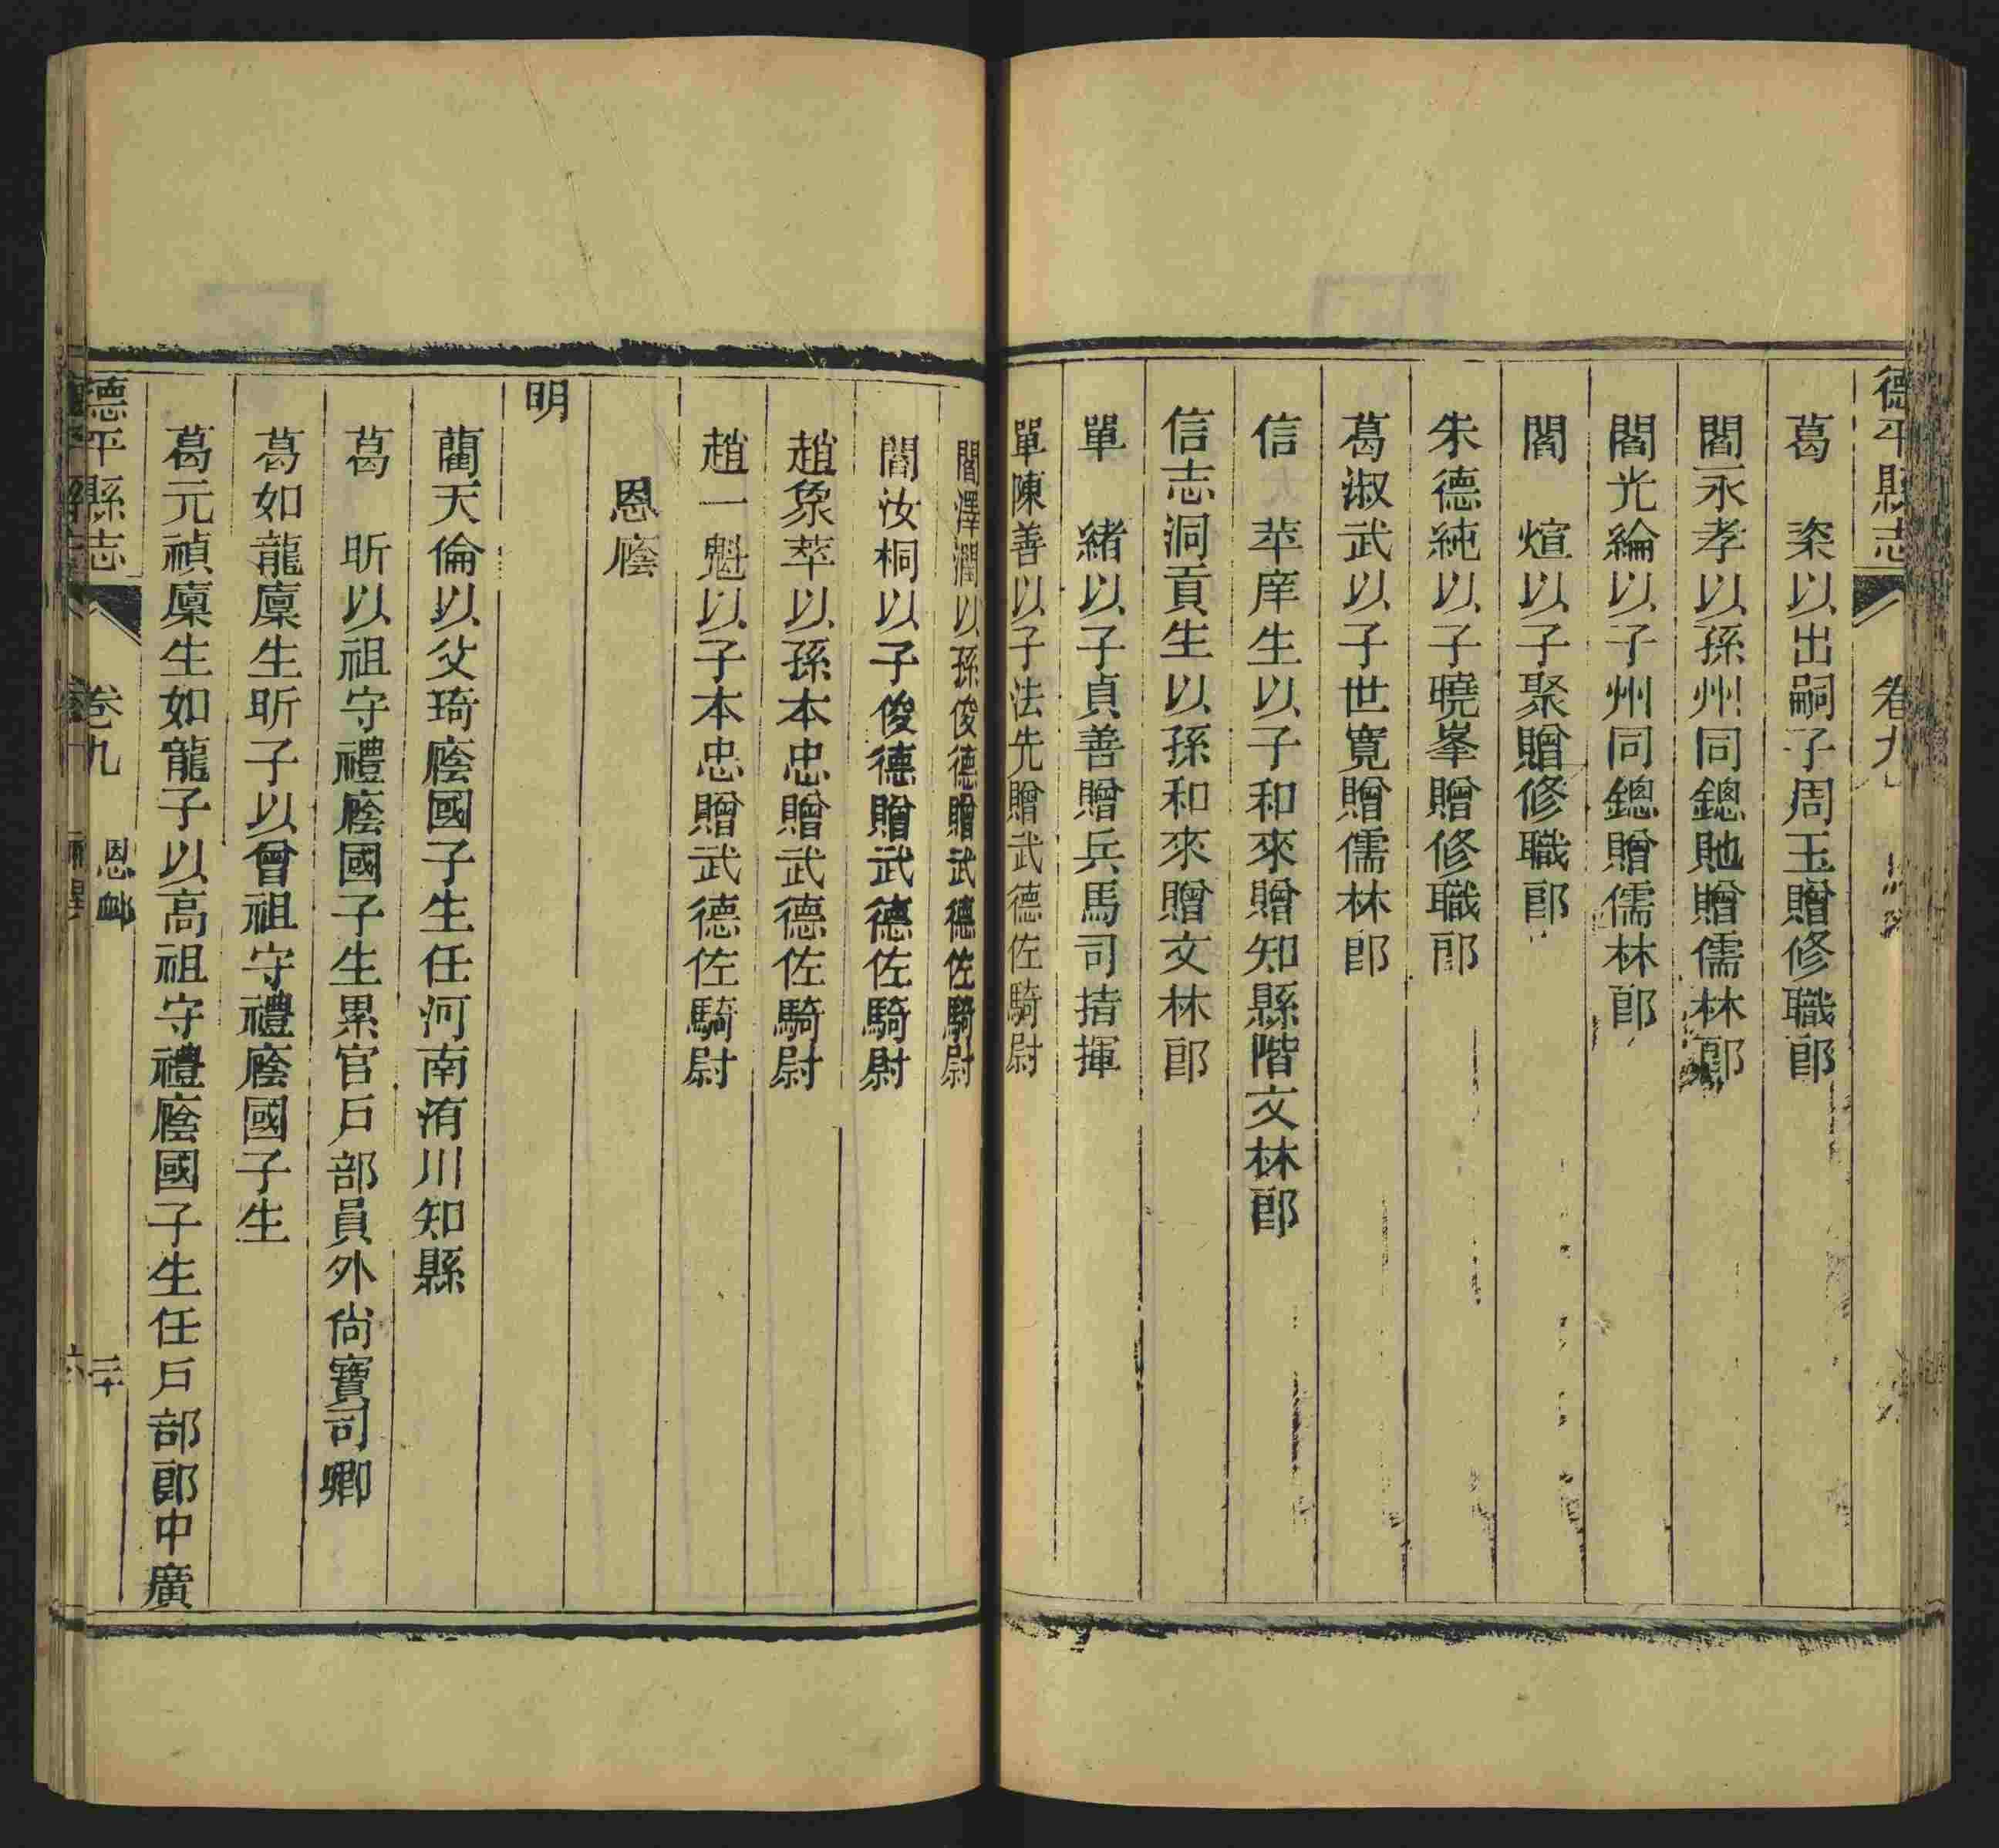 德平縣志 卷九
葛 楶以出嗣子周玉贈修職郎
閻永孝以孫州同鏓貤贈儒林郎
閻光綸以子州同鏓贈儒林郎
閻 煊以子聚贈修職郎
朱德純以子曉峯贈修職郎
葛淑武以子世寬贈儒林郎
信 苹庠生以子和來贈知縣階文林郎
信志洞貢生以孫和來贈文林郎
單 緒以子貞善贈兵馬司指揮
單陳善以子法先贈武德佐騎尉
閻澤潤以孫俊德贈武德佐騎尉
閻汝桐以子俊德贈武德佐騎尉
趙象萃以孫本忠贈武德佐騎尉
趙一魁以子本忠贈武德佐騎尉
恩廕
明
藺天倫以父琦廕國子生任河南洧川知縣
葛 昕以祖守禮廕國子生累官戶部員外尙寶司卿
葛如龍廩生昕子以曾祖守禮廕國子生
葛元禎廩生如龍子以高祖守禮廕國子生任戶部郎中廣
德平縣志 卷九 恩卹 二十